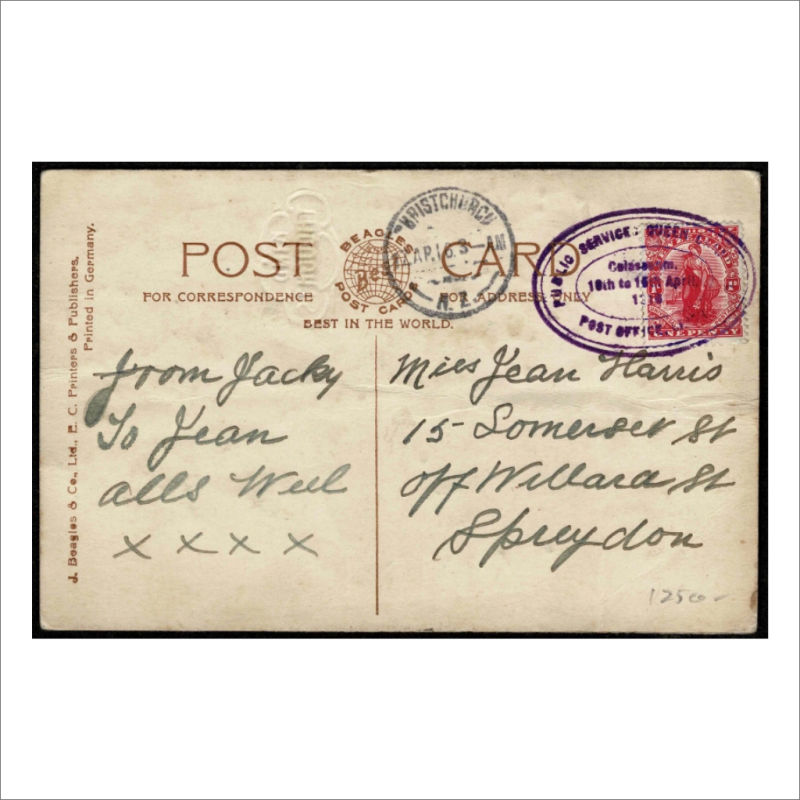 J. Beagles & Co., Ltd., E. C. Printers & Publishers.
Printed in Germany.
POST CARD
BEAGLES
Best
POST CARDS
FOR CORRESPONDENCE
FOR ADDRESS ONLY
BEST IN THE WORLD.
CHRISTCHURCH
AP.16
AM
N.Z
PUBLIC SERVICE: QUEEN
Colosseum,
to 15th April
POST OFFICE
ONE PENNY
from Jacky
To Jean
alls Well
x x x x
Miss Jean Harris
15 Somerset St
off Willard St
Spreydon
1250